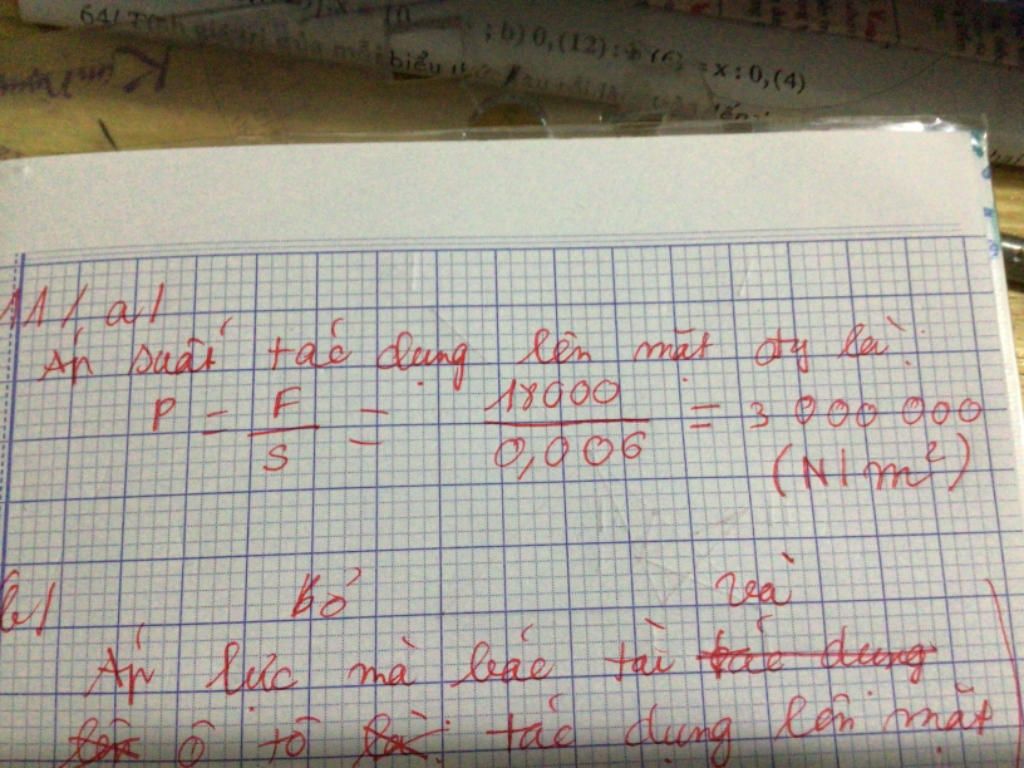 64/ Tính giá trị của mỗi biểu
; b) 0,(12):
= x : 0,(4)
11/ a/
Áp suất tác dụng lên mặt đg là:
P = F/S = 18000/0,006 = 3 000 000
(N/m²)
b/ bỏ và
Áp lực mà bác tài tác dụng
ô tô tác dụng lên mặt